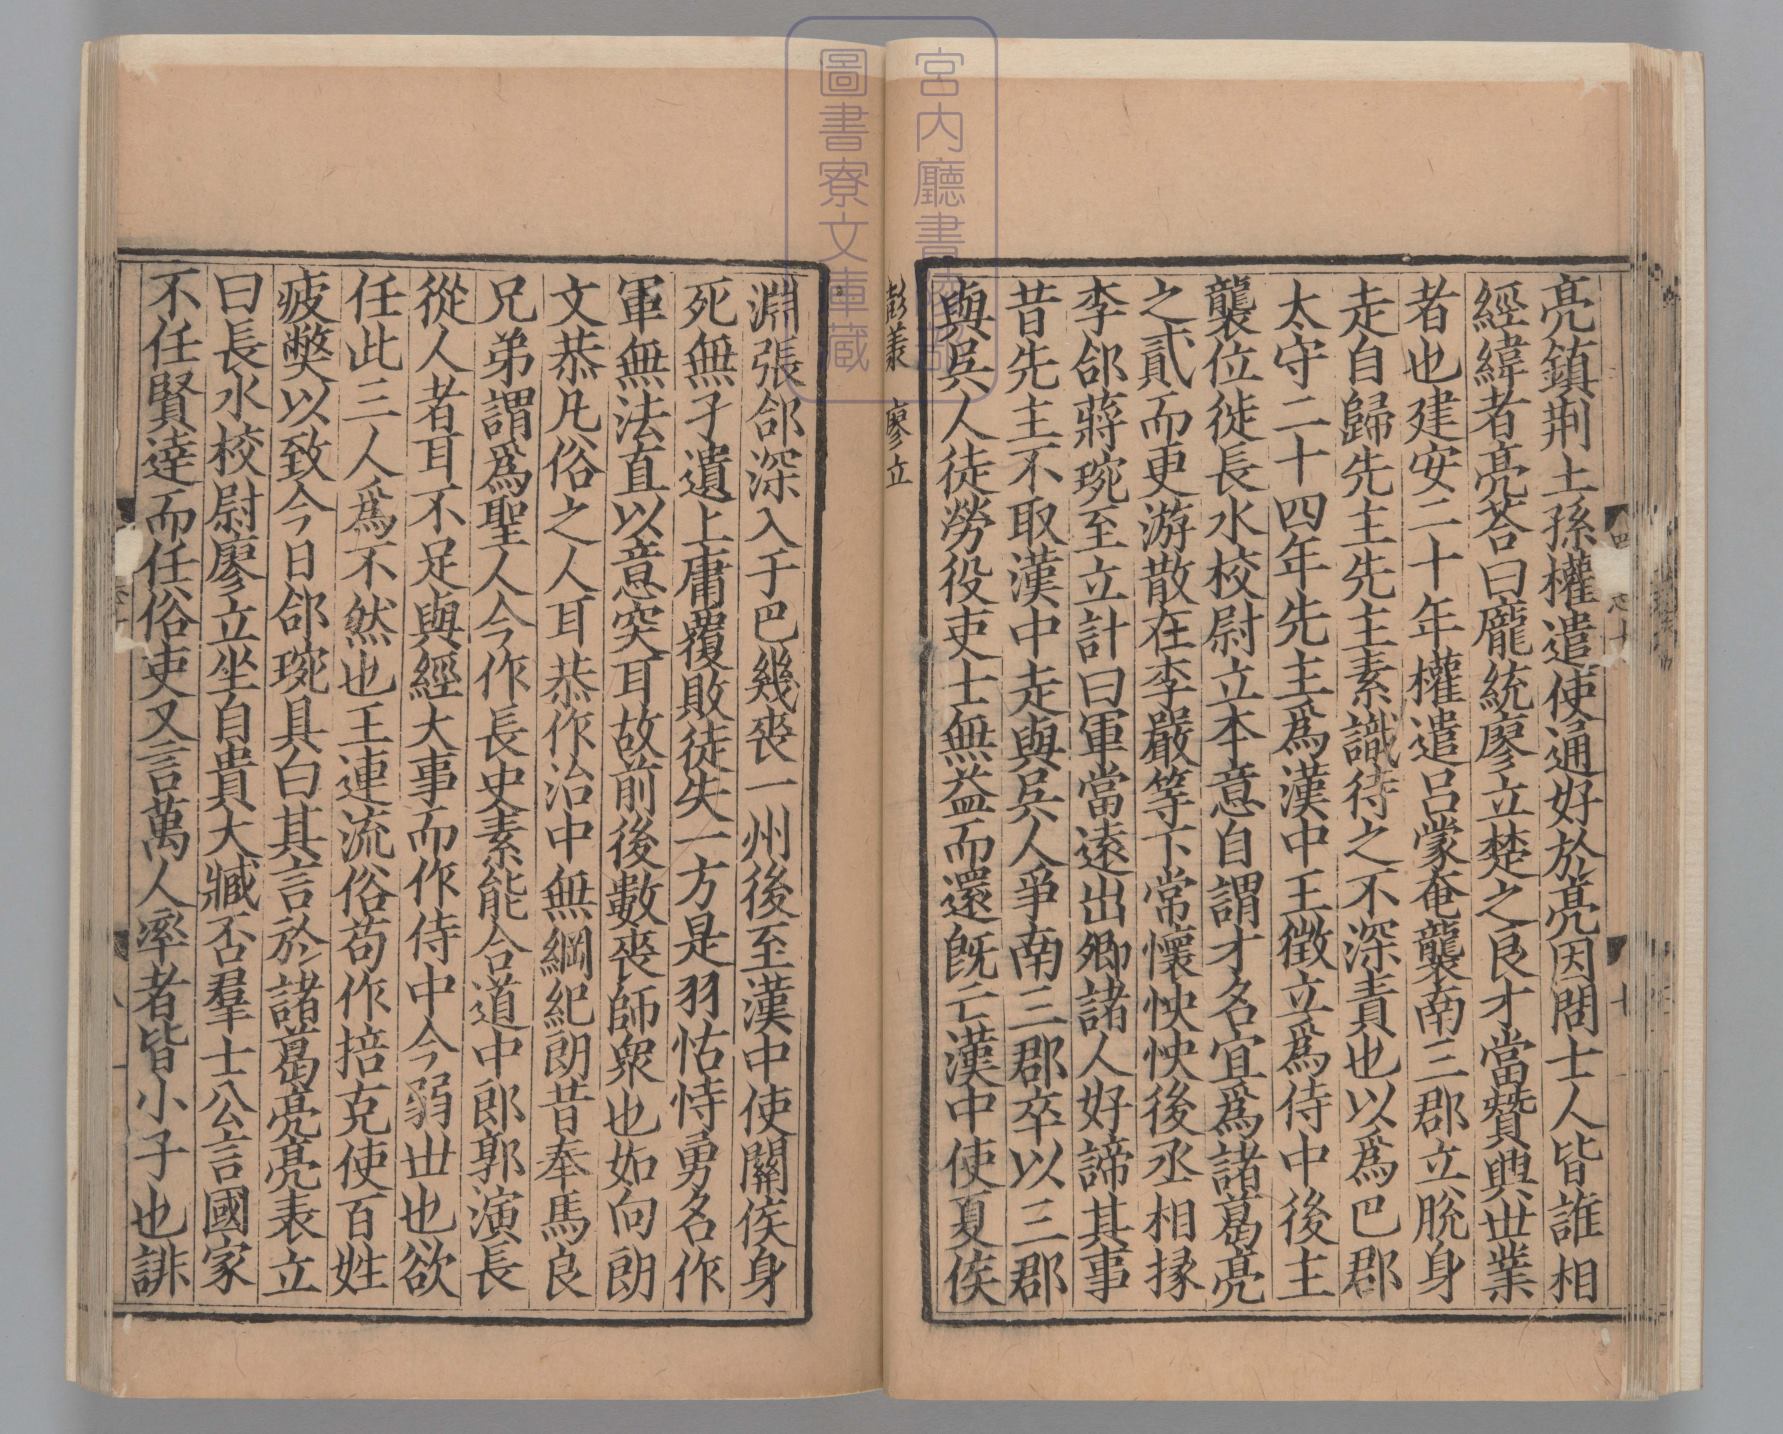 亮鎮荆土孫權遣使通好於亮因問士人皆誰相
經緯者亮荅曰龐統廖立楚之良才當賛興丗業
者也建安二十年權遣吕蒙奄襲南三郡立脫身
走自歸先主先主素識待之不深責也以爲巴郡
太守二十四年先主爲漢中王徵立爲侍中後主
襲位徙長水校尉立本意自謂才名宜爲諸葛亮
之貳而更游散在李嚴等下常懷怏怏後丞相掾
李郃蔣琬至立計曰軍當遠出卿諸人好諦其事
昔先主不取漢中走與吴人爭南三郡卒以三郡
與吴人徒勞役吏士無益而還旣亡漢中使夏侯
彭羕 廖立
淵張郃深入于巴幾喪一州後至漢中使關侯身
死無孑遺上庸覆敗徒失一方是羽怙恃勇名作
軍無法直以意突耳故前後數喪師衆也如向朗
文恭凡俗之人耳恭作治中無綱紀朗昔奉馬良
兄弟謂爲聖人今作長史素能合道中郎郭演長
從人者耳不足與經大事而作侍中今弱丗也欲
任此三人爲不然也王連流俗苟作掊克使百姓
疲獘以致今日郃琬具白其言於諸葛亮亮表立
曰長水校尉廖立坐自貴大臧否羣士公言國家
不任賢達而任俗吏又言萬人率者皆小子也誹
宮内廳書陵部
圖書寮文庫藏